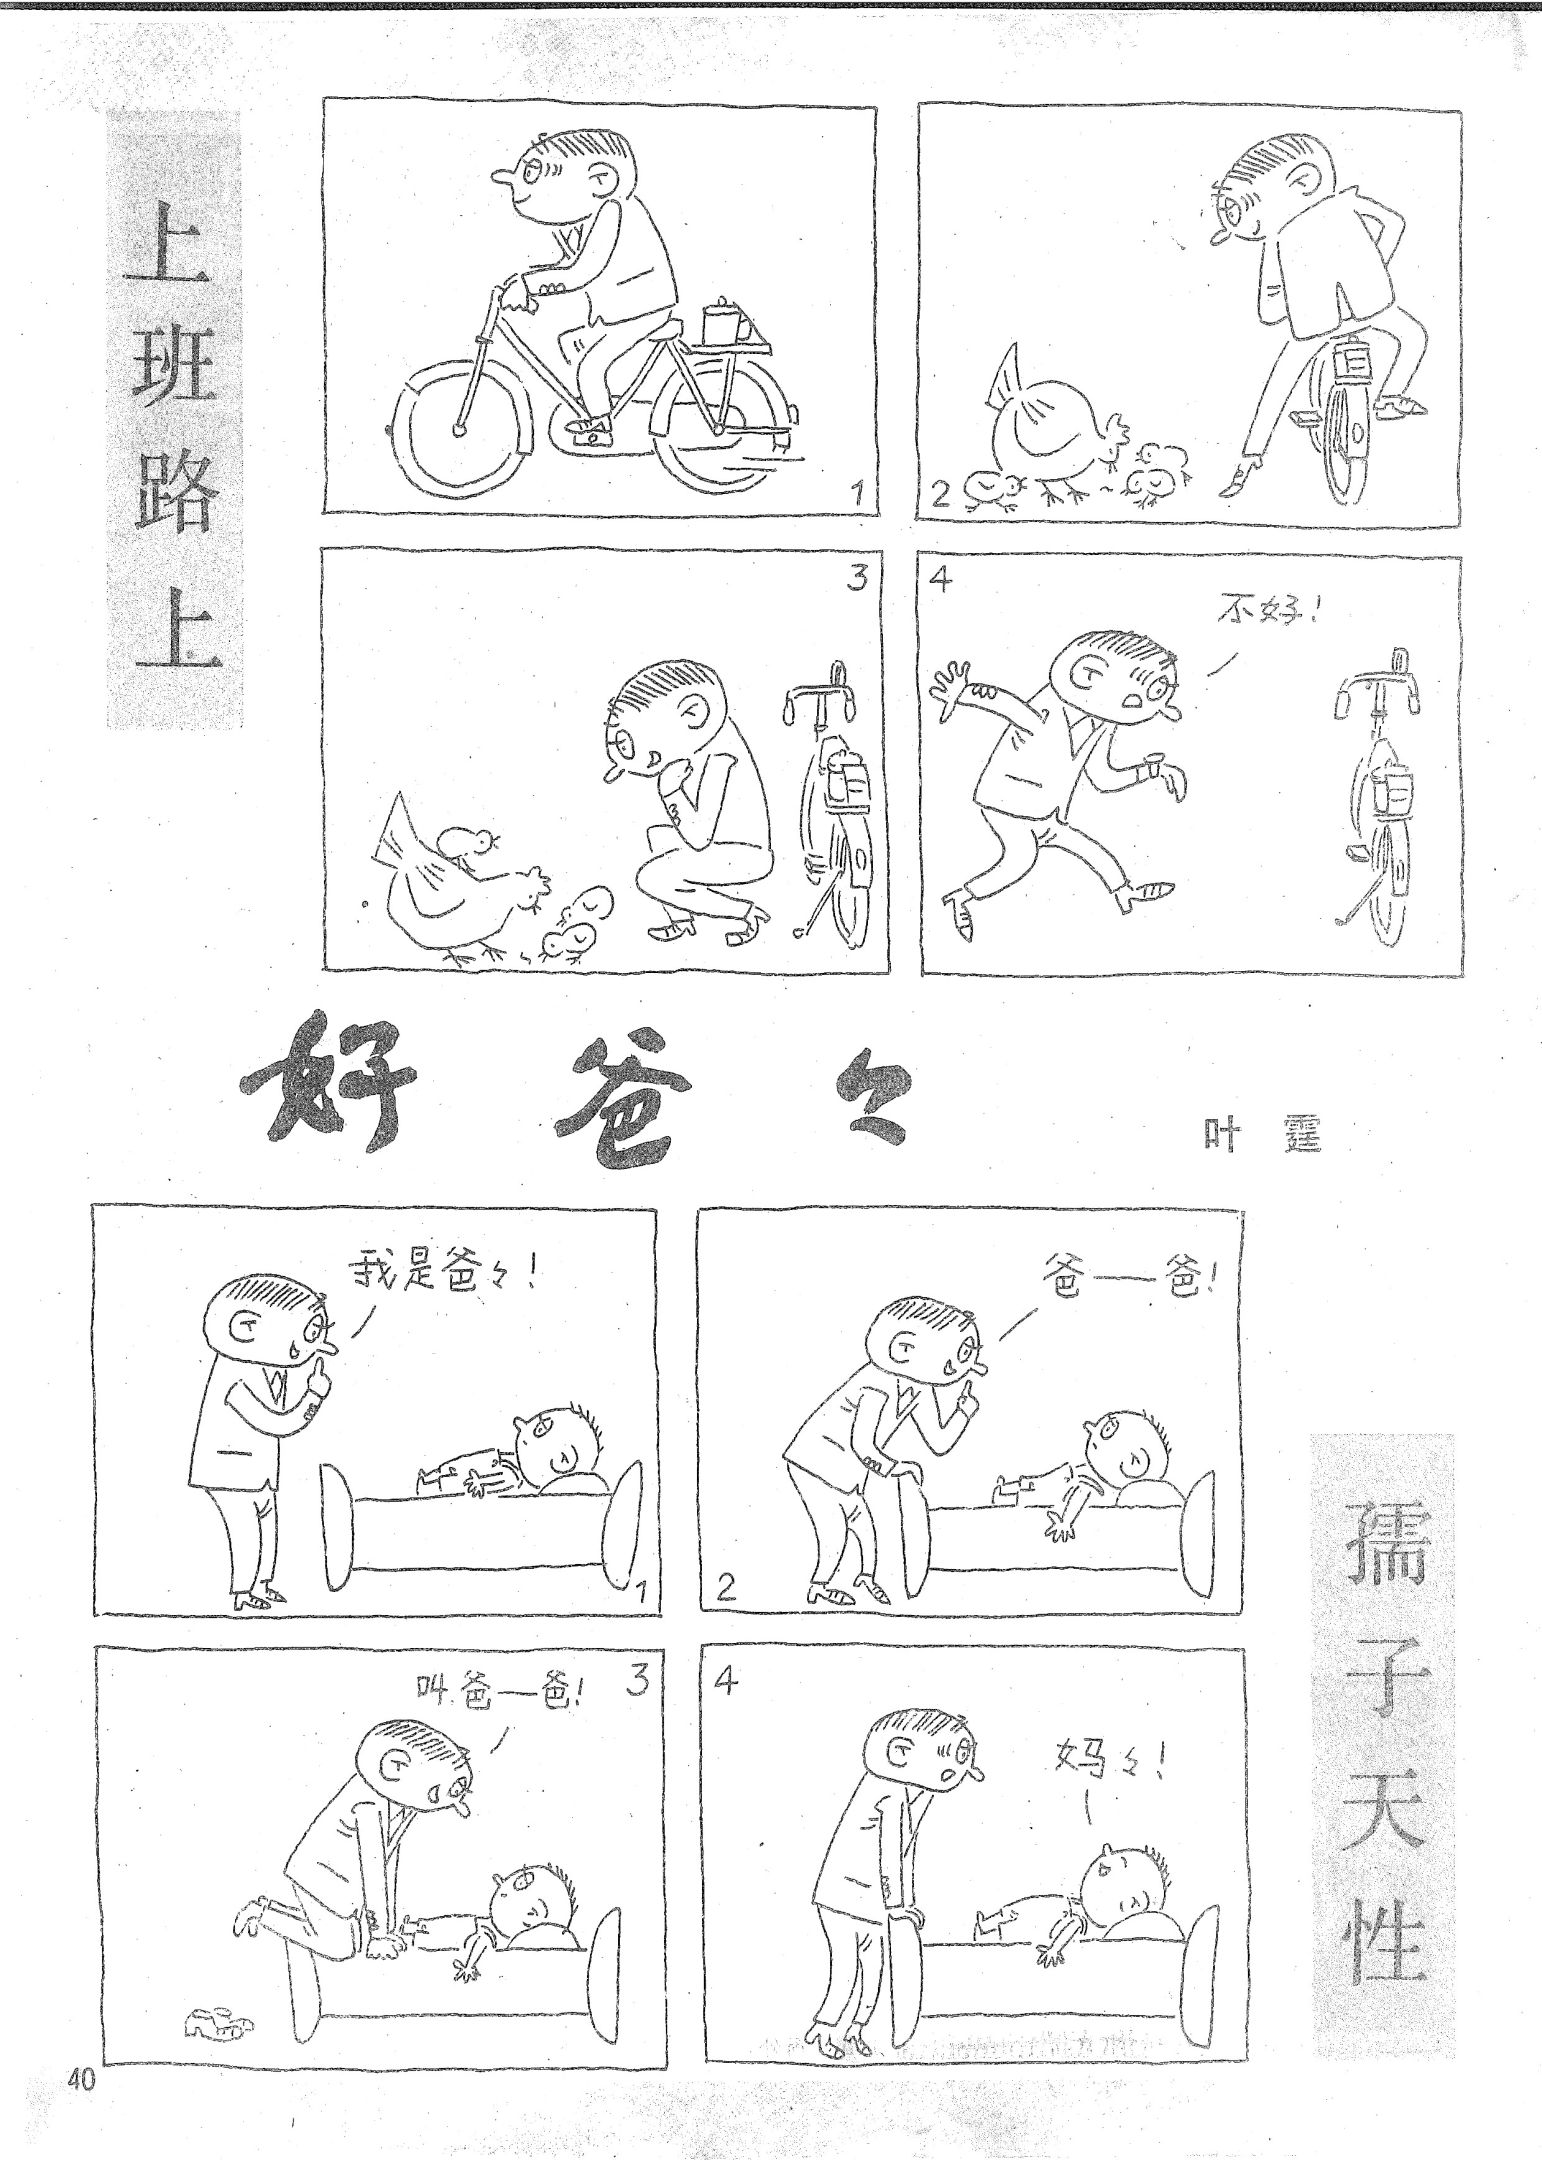 上班路上
1
2
3
4
不好！
好爸々
叶霆
我是爸々！
1
爸——爸！
2
叫爸—爸！
3
4
妈々！
孺子天性
40